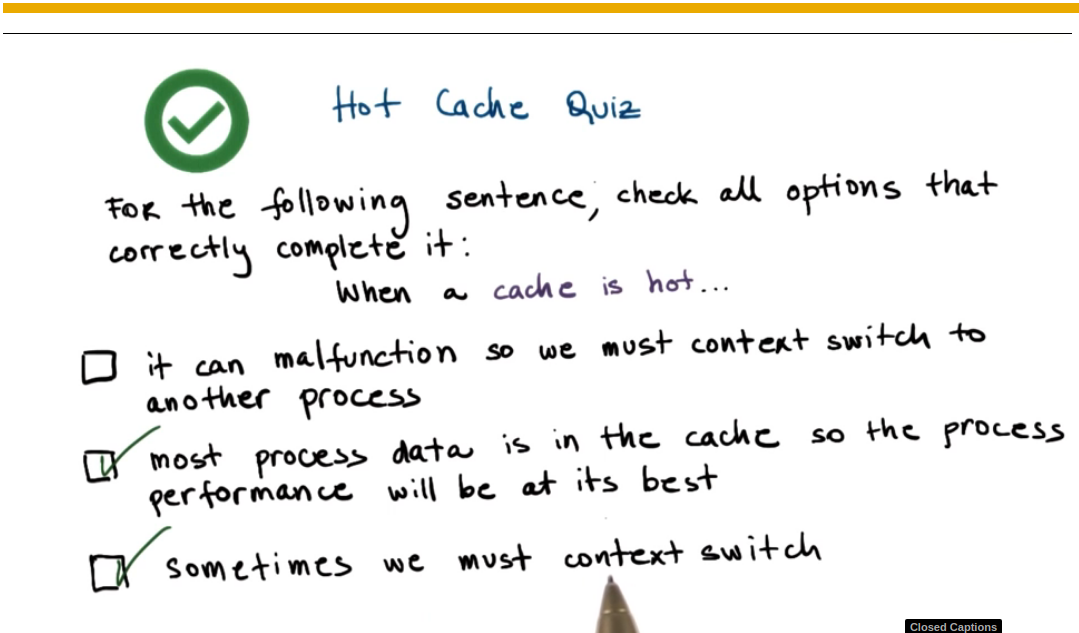 Hot Cache Quiz
For the following sentence, check all options that
correctly complete it:
When a cache is hot...
it can malfunction so we must context switch to
another process
most process data is in the cache so the process
performance will be at its best
sometimes we must context switch
Closed Captions